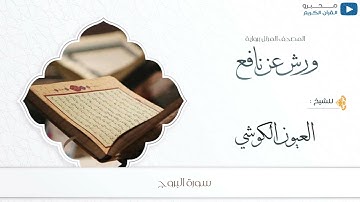 محبرو
القرآن الكريم
المصحف المنزل برواية
ورش عن نافع
للشيخ :
العيون الكوشي
سورة البروج